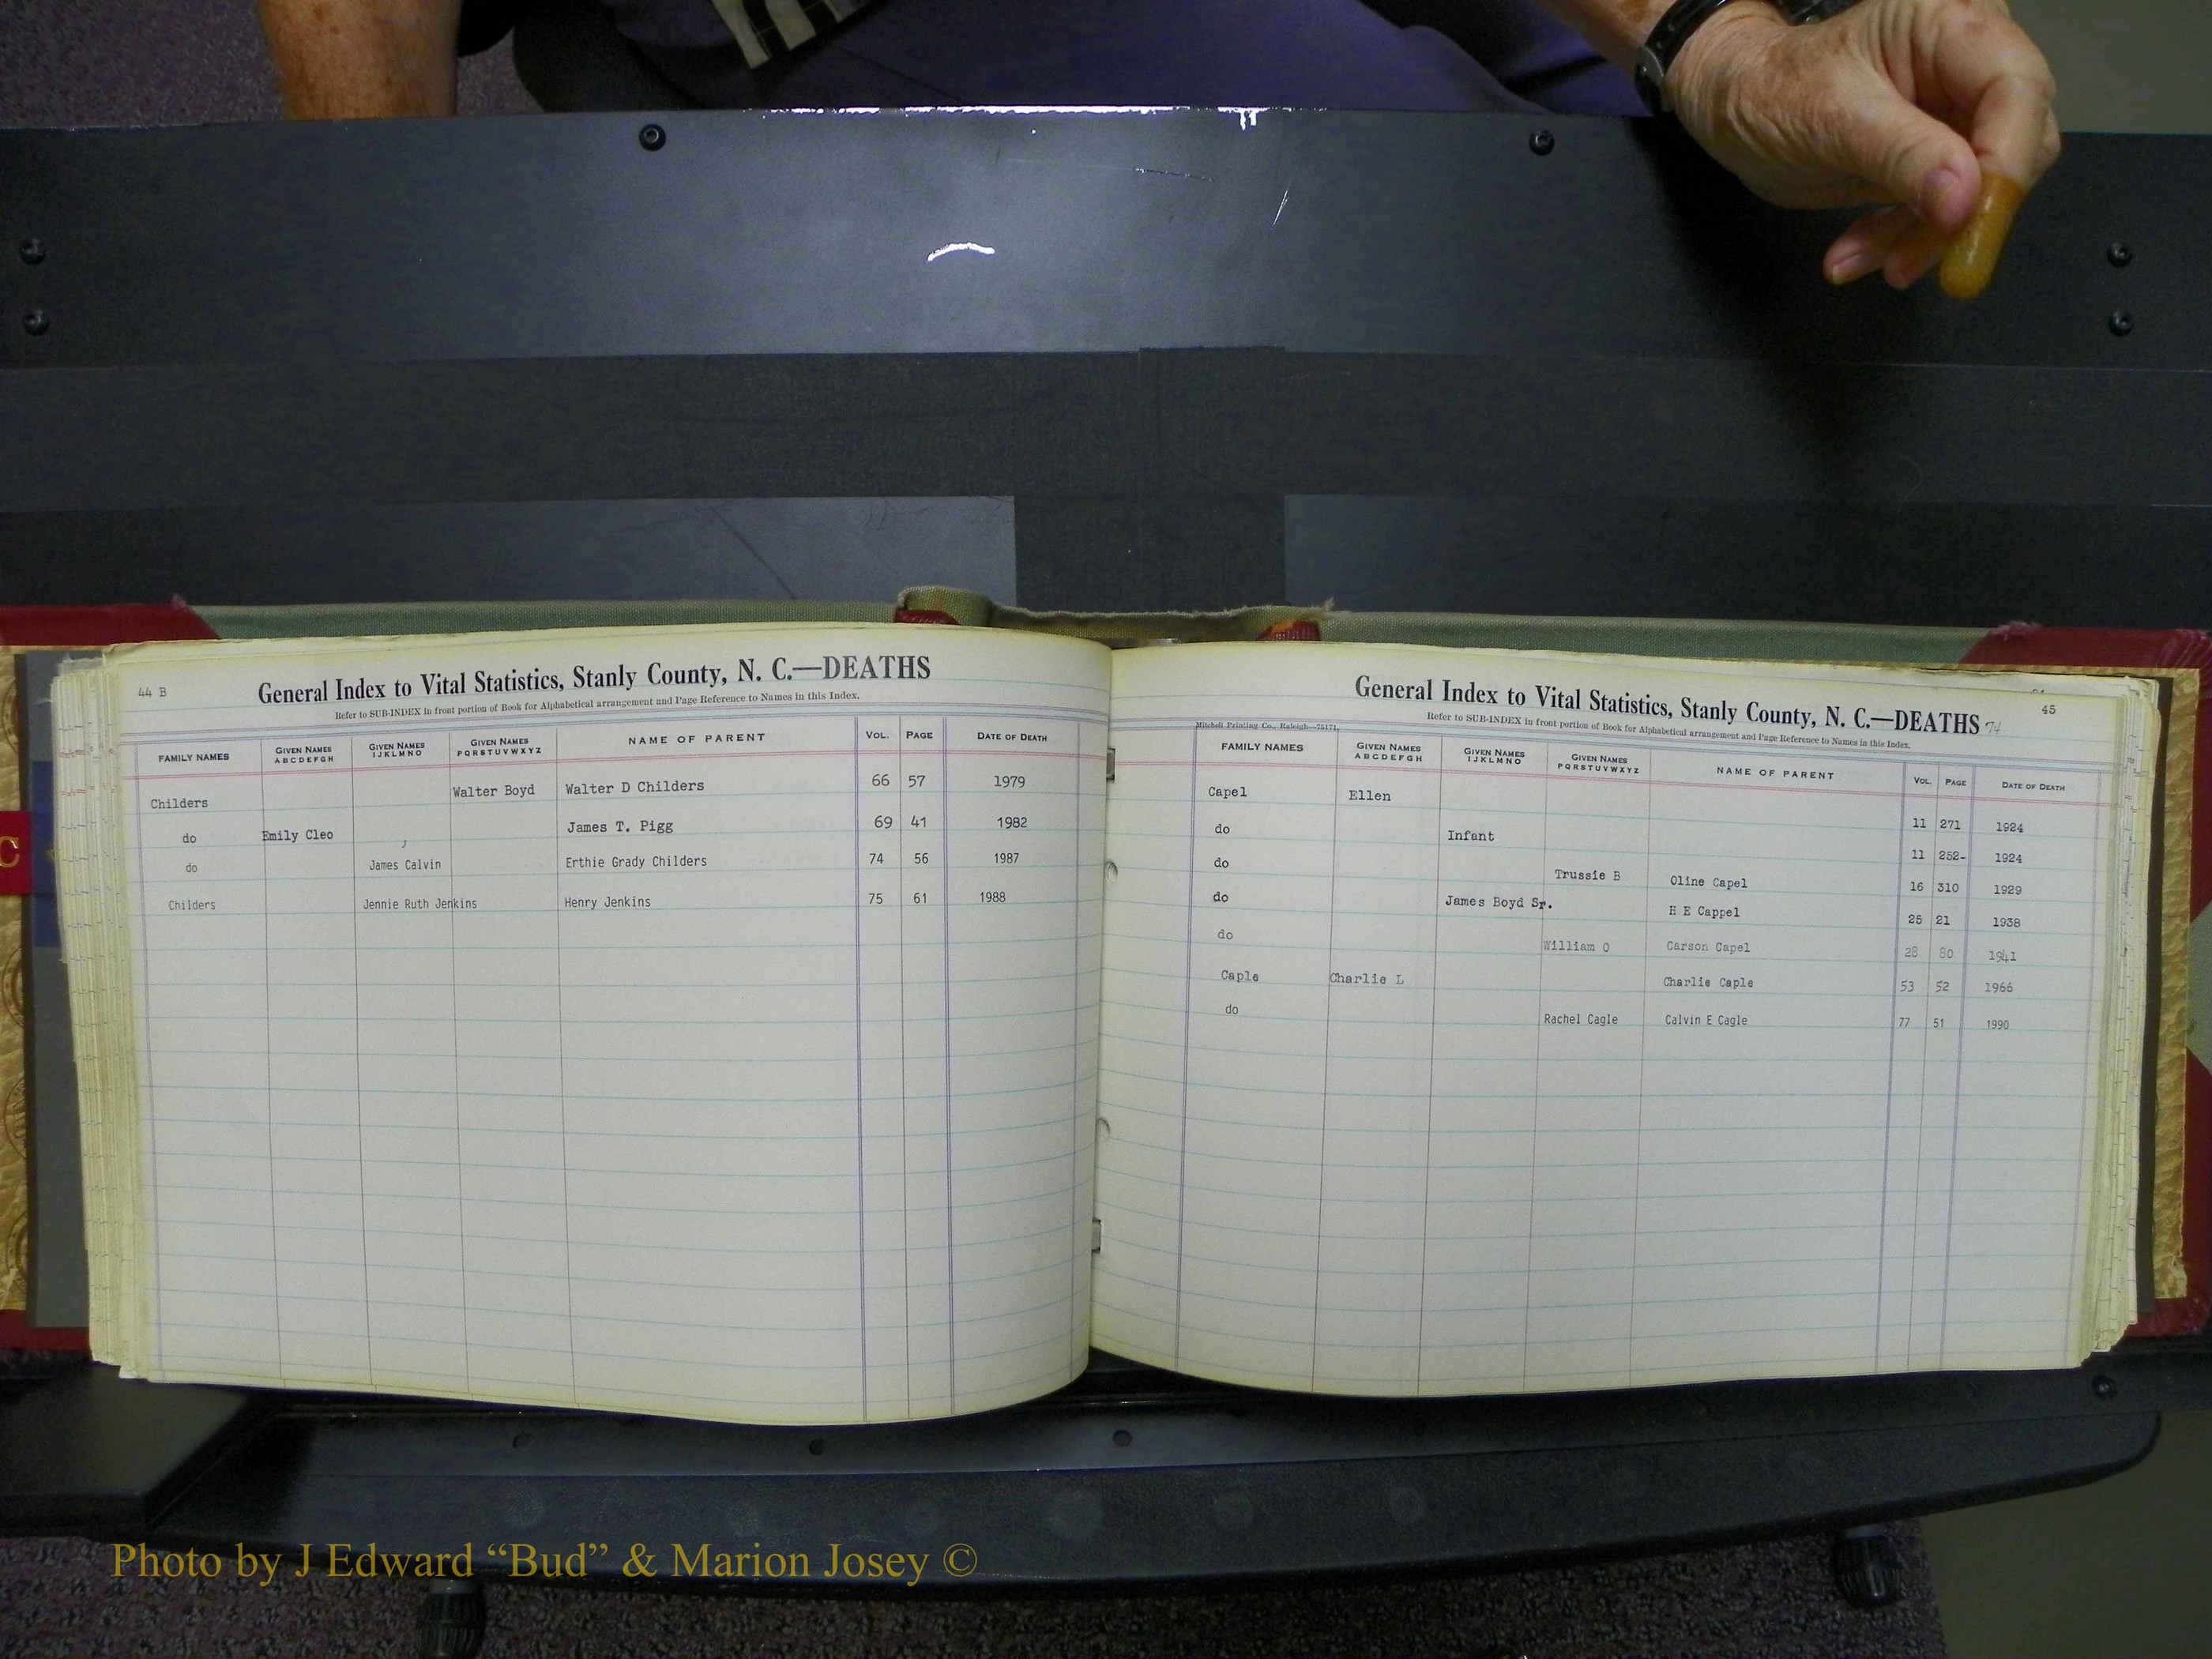 44 B
General Index to Vital Statistics, Stanly County, N. C.—DEATHS
Refer to SUB-INDEX in front portion of Book for Alphabetical arrangement and Page Reference to Names in this Index.
FAMILY NAMES GIVEN NAMES ABCDEFGH GIVEN NAMES IJKLMNO GIVEN NAMES PQRSTUVWXYZ NAME OF PARENT VOL. PAGE DATE OF DEATH
Childers Walter Boyd Walter D Childers 66 57 1979
do Emily Cleo James T. Pigg 69 41 1982
do James Calvin Erthie Grady Childers 74 56 1987
Childers Jennie Ruth Jenkins Henry Jenkins 75 61 1988
45
General Index to Vital Statistics, Stanly County, N. C.—DEATHS 74
Refer to SUB-INDEX in front portion of Book for Alphabetical arrangement and Page Reference to Names in this Index.
Mitchell Printing Co., Raleigh—75171.
FAMILY NAMES GIVEN NAMES ABCDEFGH GIVEN NAMES IJKLMNO GIVEN NAMES PQRSTUVWXYZ NAME OF PARENT VOL. PAGE DATE OF DEATH
Capel Ellen 11 271 1924
do Infant 11 252- 1924
do Trussie B Oline Capel 16 310 1929
do James Boyd Sr. H E Cappel 25 21 1938
do William O Carson Capel 28 80 1941
Caple Charlie L Charlie Caple 53 52 1966
do Rachel Cagle Calvin E Cagle 77 51 1990
C
Photo by J Edward “Bud” & Marion Josey ©